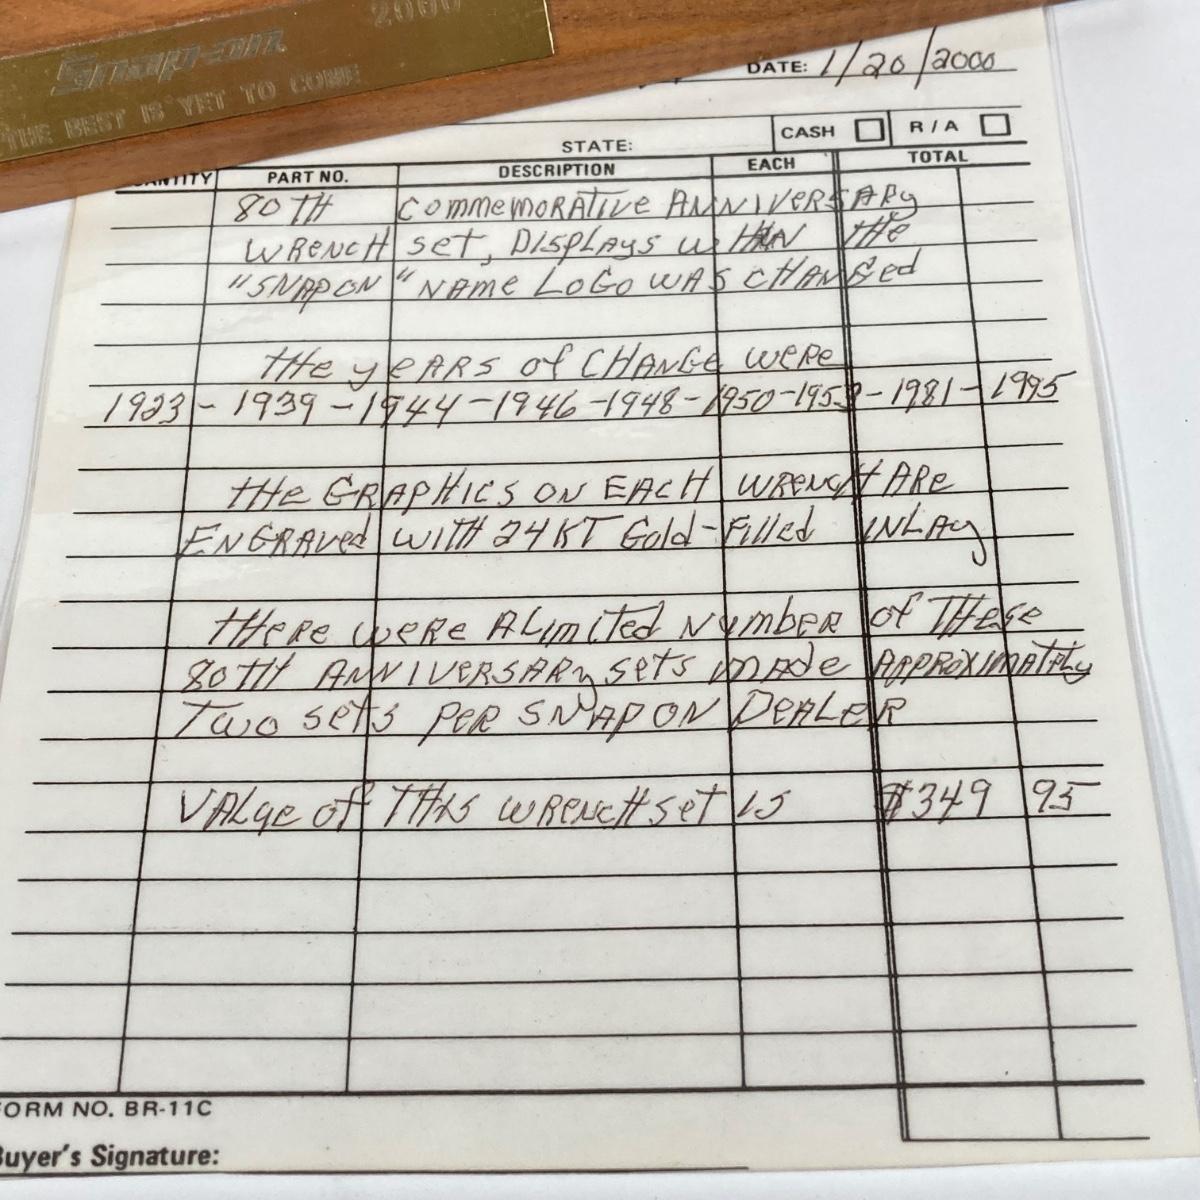 2000
Snap-on
THE BEST IS YET TO COME
DATE: 1/20/2000
STATE: CASH R/A
PART NO. DESCRIPTION EACH TOTAL
80TH COMMEMORATIVE ANNIVERSARY
WRENCH SET, DISPLAYS WHEN THE
"SNAPON" NAME LOGO WAS CHANGED
THE YEARS OF CHANGE WERE
1923 - 1939 - 1944 - 1946 - 1948 - 1950 - 1953 - 1981 - 1995
THE GRAPHICS ON EACH WRENCH ARE
ENGRAVED WITH 24KT Gold-Filled INLAY
THERE WERE A LIMITED NUMBER OF THESE
80TH ANNIVERSARY SETS MADE APPROXIMATLY
TWO SETS PER SNAP ON DEALER
VALUE OF THIS WRENCH SET IS $349 95
FORM NO. BR-11C
Buyer's Signature: